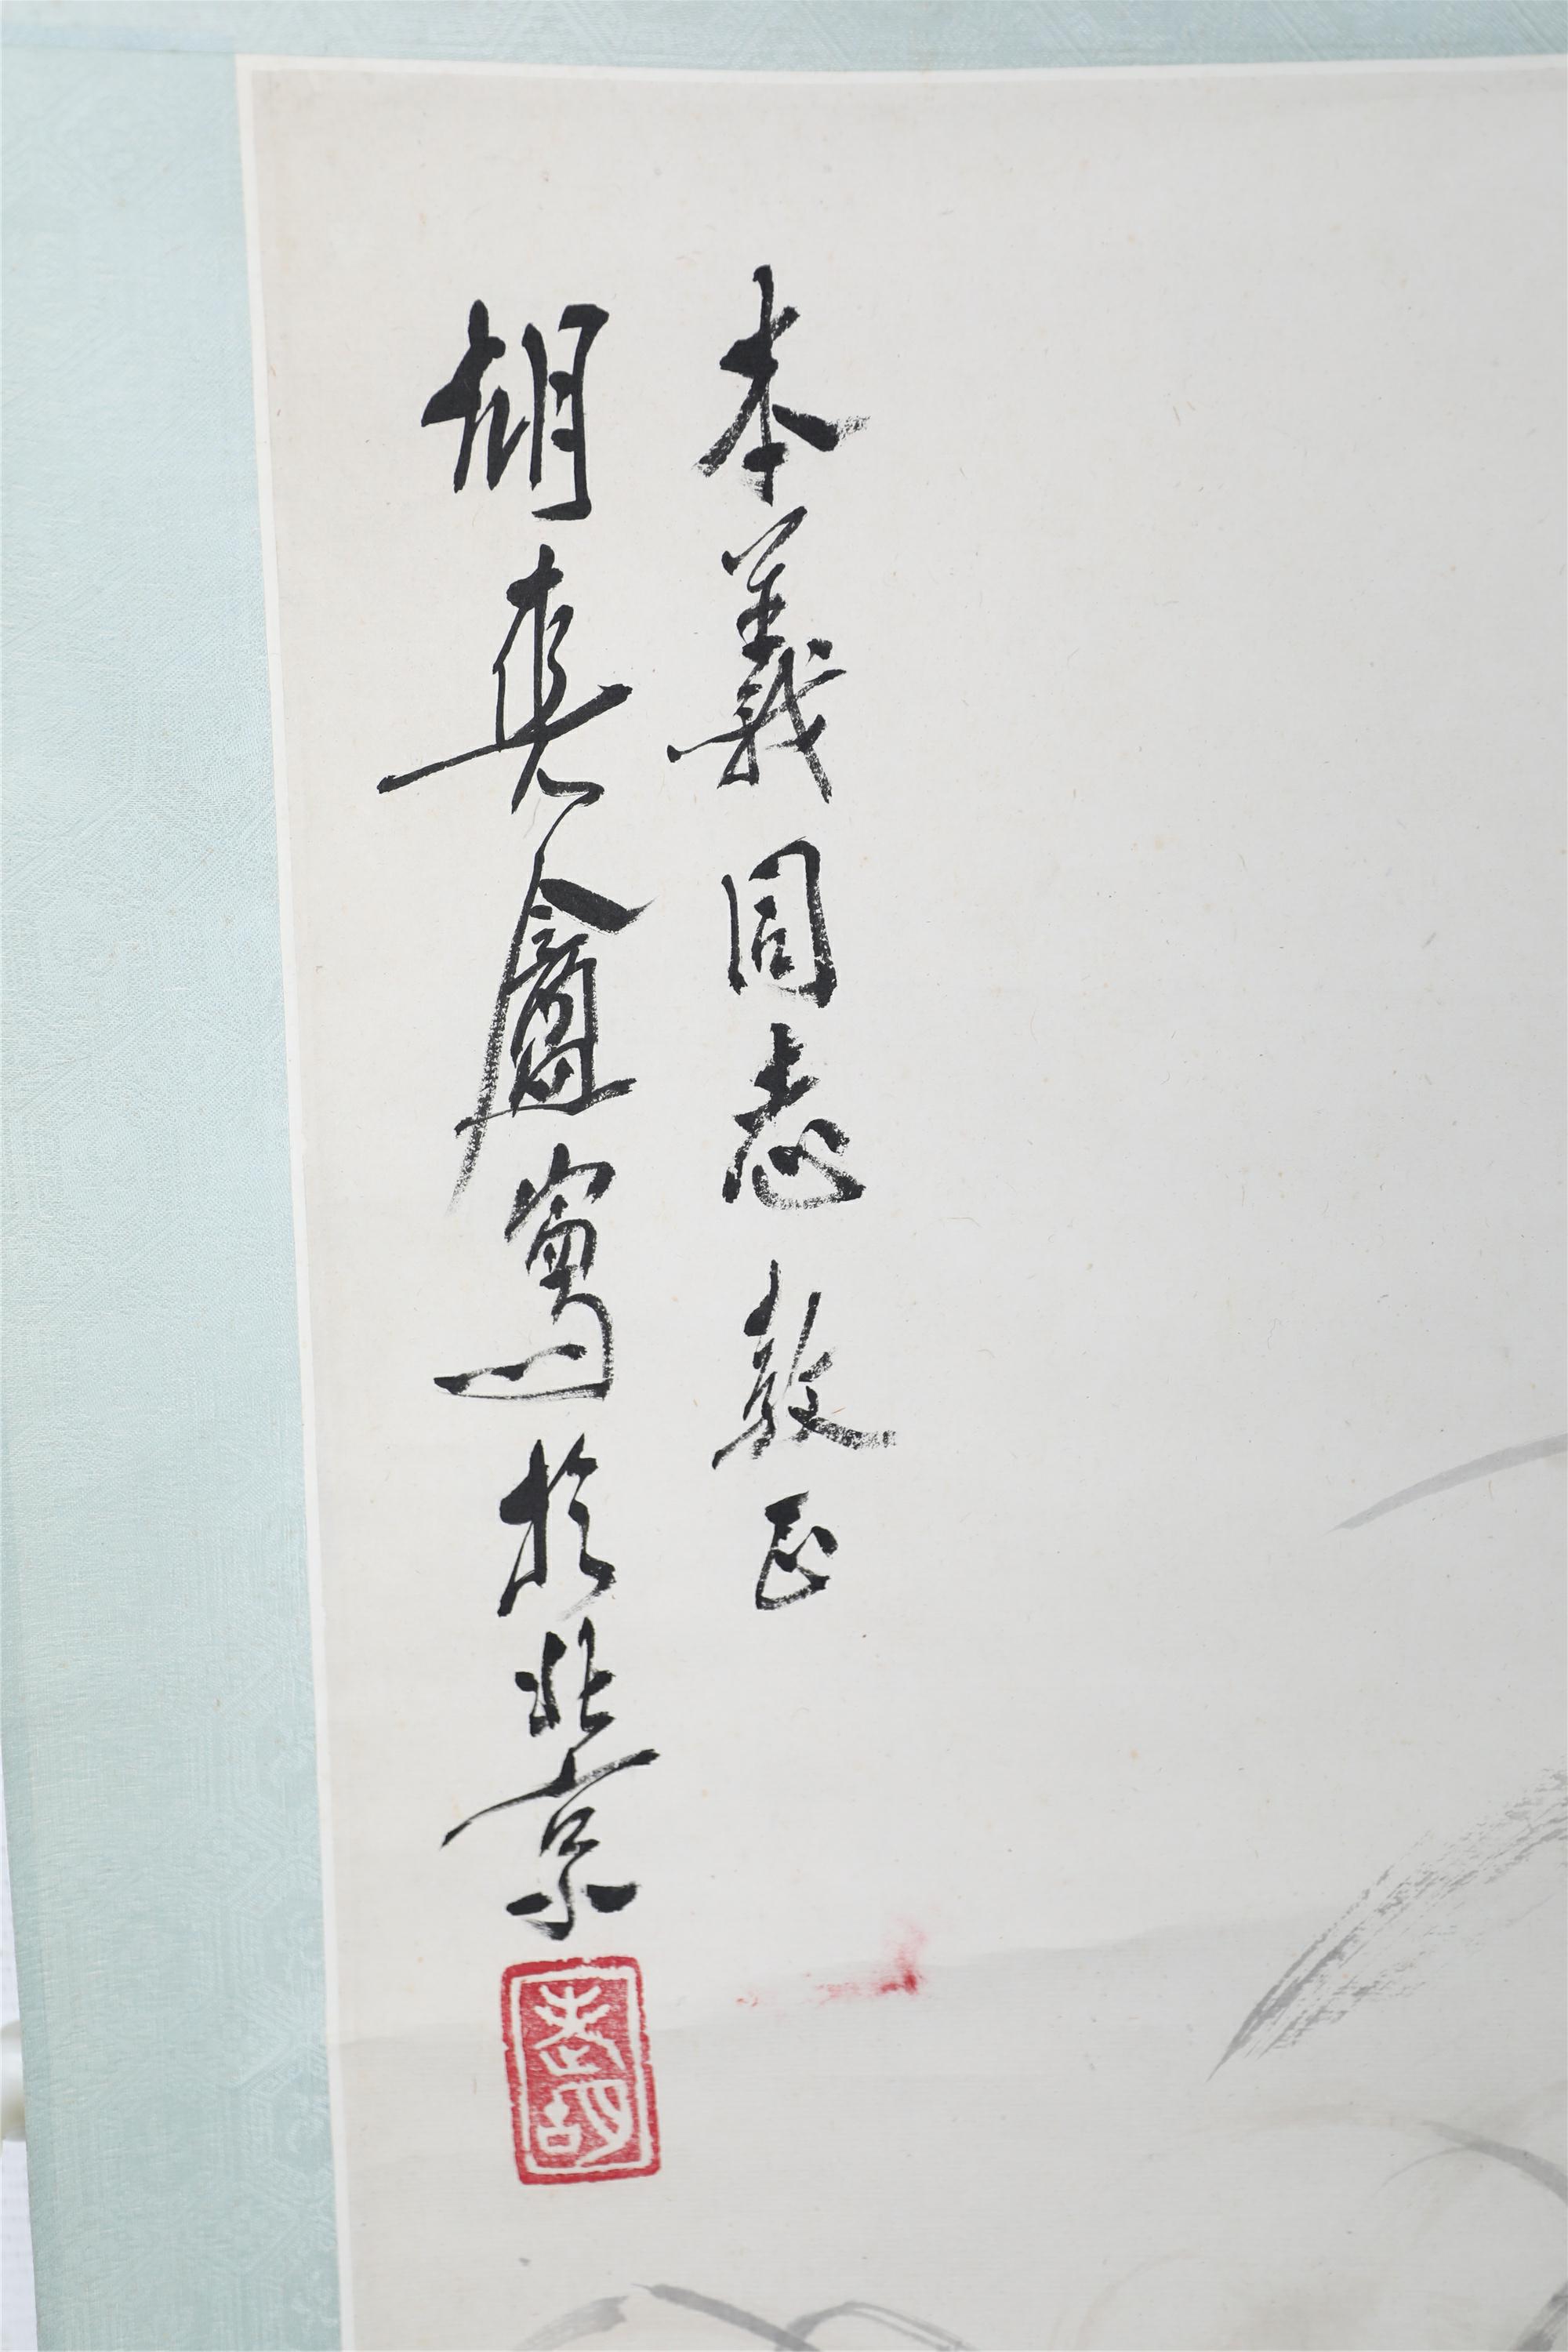 本義同志教正
胡爽盦寫於北京
老胡